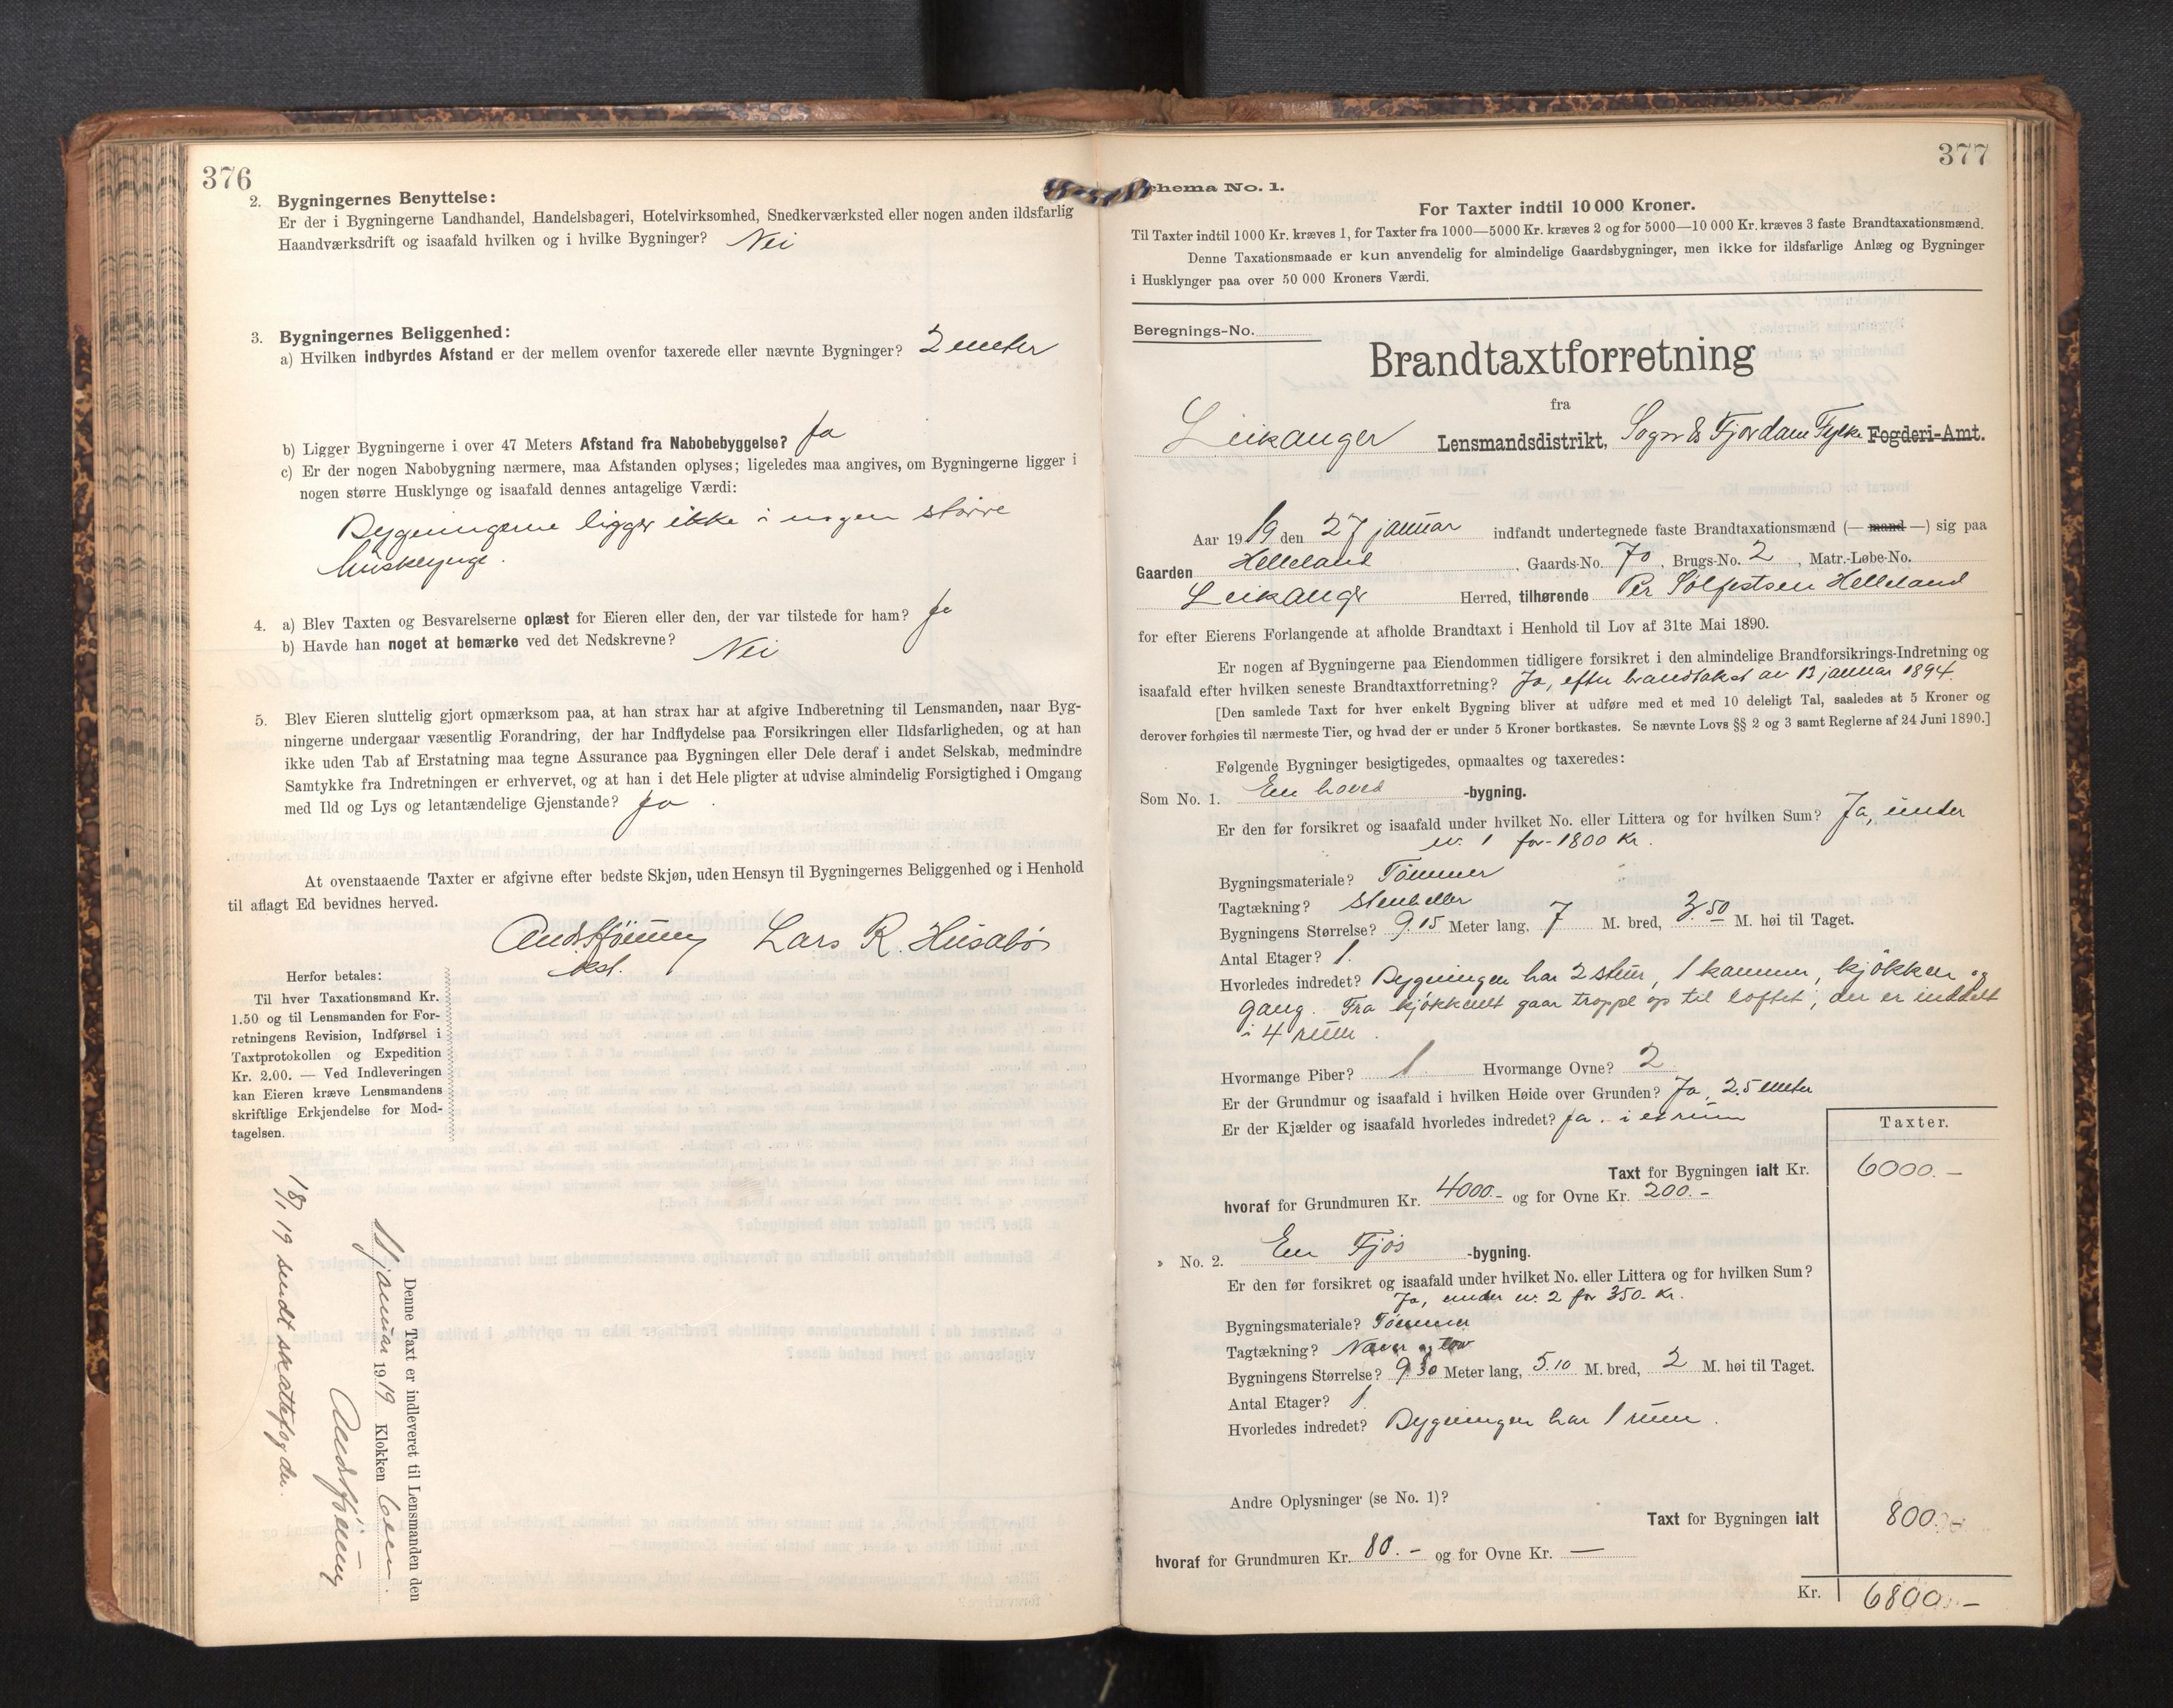 376
2. Bygningernes Benyttelse:
Er der i Bygningerne Landhandel, Handelsbageri, Hotelvirksomhed, Snedkerværksted eller nogen anden ildsfarlig
Haandværksdrift og isaafald hvilken og i hvilke Bygninger? Nei
3. Bygningernes Beliggenhed:
a) Hvilken indbyrdes Afstand er der mellem ovenfor taxerede eller nævnte Bygninger? 2 meter
b) Ligger Bygningerne i over 47 Meters Afstand fra Nabobebyggelse? Ja
c) Er der nogen Nabobygning nærmere, maa Afstanden oplyses; ligeledes maa angives, om Bygningerne ligger i
nogen større Husklynge og isaafald dennes antagelige Værdi:
Bygningerne ligger ikke i nogen større
husklynge.
4. a) Blev Taxten og Besvarelserne oplæst for Eieren eller den, der var tilstede for ham? Ja
b) Havde han noget at bemærke ved det Nedskrevne? Nei
5. Blev Eieren sluttelig gjort opmærksom paa, at han strax har at afgive Indberetning til Lensmanden, naar Byg-
ningerne undergaar væsentlig Forandring, der har Indflydelse paa Forsikringen eller Ildsfarligheden, og at han
ikke uden Tab af Erstatning maa tegne Assurance paa Bygningen eller Dele deraf i andet Selskab, medmindre
Samtykke fra Indretningen er erhvervet, og at han i det Hele pligter at udvise almindelig Forsigtighed i Omgang
med Ild og Lys og letantændelige Gjenstande? Ja.
At ovenstaaende Taxter er afgivne efter bedste Skjøn, uden Hensyn til Bygningernes Beliggenhed og i Henhold
til aflagt Ed bevidnes herved.
Lars R. Husabø
Herfor betales:
Til hver Taxationsmand Kr.
1.50 og til Lensmanden for For-
retningens Revision, Indførsel i
Taxtprotokollen og Expedition
Kr. 2.00. — Ved Indleveringen
kan Eieren kræve Lensmandens
skriftlige Erkjendelse for Mod-
tagelsen.
Denne Taxt er indleveret til Lensmanden den
januar 1919 Klokken
19 sendt skattefogden.
377
chema No. 1.
For Taxter indtil 10 000 Kroner.
Til Taxter indtil 1000 Kr. kræves 1, for Taxter fra 1000—5000 Kr. kræves 2 og for 5000—10 000 Kr. kræves 3 faste Brandtaxationsmænd.
Denne Taxationsmaade er kun anvendelig for almindelige Gaardsbygninger, men ikke for ildsfarlige Anlæg og Bygninger
i Husklynger paa over 50 000 Kroners Værdi.
Beregnings-No.
Brandtaxtforretning
fra
Leikanger Lensmandsdistrikt, Sogn & Fjordane Fylke Fogderi-Amt.
Aar 1919 den 27 januar indfandt undertegnede faste Brandtaxationsmænd (— mand —) sig paa
Gaarden Helleland, Gaards-No. 70, Brugs-No. 2, Matr.-Løbe-No.
Leikanger Herred, tilhørende Per Solfestsen Helleland
for efter Eierens Forlangende at afholde Brandtaxt i Henhold til Lov af 31te Mai 1890.
Er nogen af Bygningerne paa Eiendommen tidligere forsikret i den almindelige Brandforsikrings-Indretning og
isaafald efter hvilken seneste Brandtaxtforretning? Ja, efter brandtakst av 13 januar 1894.
[Den samlede Taxt for hver enkelt Bygning bliver at udføre med et med 10 deleligt Tal, saaledes at 5 Kroner og
derover forhøies til nærmeste Tier, og hvad der er under 5 Kroner bortkastes. Se nævnte Lovs §§ 2 og 3 samt Reglerne af 24 Juni 1890.]
Følgende Bygninger besigtigedes, opmaaltes og taxeredes:
Som No. 1. En hoved -bygning.
Er den før forsikret og isaafald under hvilket No. eller Littera og for hvilken Sum? Ja, under
nr. 1 for 1800 Kr.
Bygningsmateriale? Tømmer
Tagtækning? Stenheller
Bygningens Størrelse? 9.15 Meter lang, 7 M. bred, 3.50 M. høi til Taget.
Antal Etager? 1.
Hvorledes indredet? Bygningen har 2 stuer, 1 kammer, kjøkken og
gang. Fra kjøkkenet gaar trappe op til loftet, der er inddelt
i 4 rum.
Hvormange Piber? 1. Hvormange Ovne? 2
Er der Grundmur og isaafald i hvilken Høide over Grunden? Ja, 2.5 meter
Er der Kjælder og isaafald hvorledes indredet? Ja. i et rum
Taxter.
Taxt for Bygningen ialt Kr. 6000.–
hvoraf for Grundmuren Kr. 4000.– og for Ovne Kr. 200.–
» No. 2. En Fjøs -bygning.
Er den før forsikret og isaafald under hvilket No. eller Littera og for hvilken Sum?
Ja, under nr. 2 for 350.– Kr.
Bygningsmateriale? Tømmer
Tagtækning? Næver og torv
Bygningens Størrelse? 9.30 Meter lang, 5.10 M. bred, 2 M. høi til Taget.
Antal Etager? 1.
Hvorledes indredet? Bygningen har 1 rum.
Andre Oplysninger (se No. 1)?
Taxt for Bygningen ialt 800.–
hvoraf for Grundmuren Kr. 80.– og for Ovne Kr. —
Kr. 6800.–